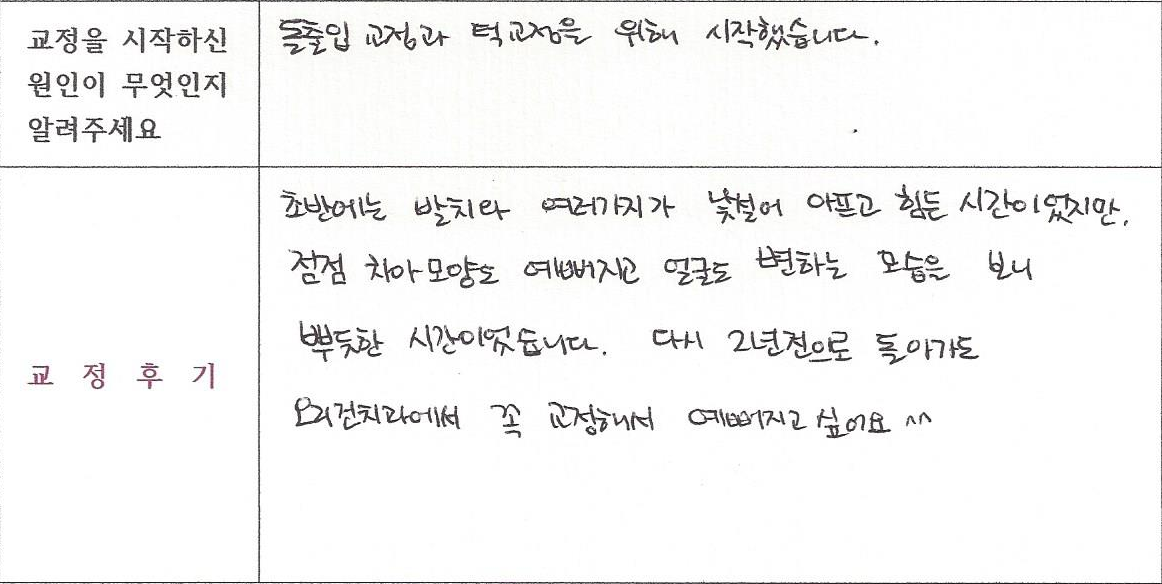 교정을 시작하신
원인이 무엇인지
알려주세요
돌출입 교정과 턱교정을 위해 시작했습니다.
교정후기
초반에는 발치와 여러가지가 낯설어 아프고 힘든 시간이었지만,
점점 치아모양도 예뻐지고 얼굴도 변하는 모습을 보니
뿌듯한 시간이었습니다. 다시 2년전으로 돌아가도
꼭 교정해서 예뻐지고 싶어요 ^^